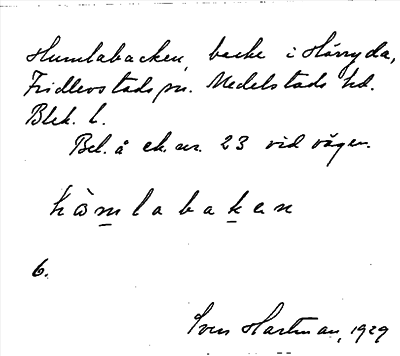 Humlabacken, backe i Härryda,
Fridlevstads sn. Medelstads hd.
Blek. l.
Bel. å ek. nr. 23 vid vägen.
hòmlabaken
6.
Sven Hartman, 1929